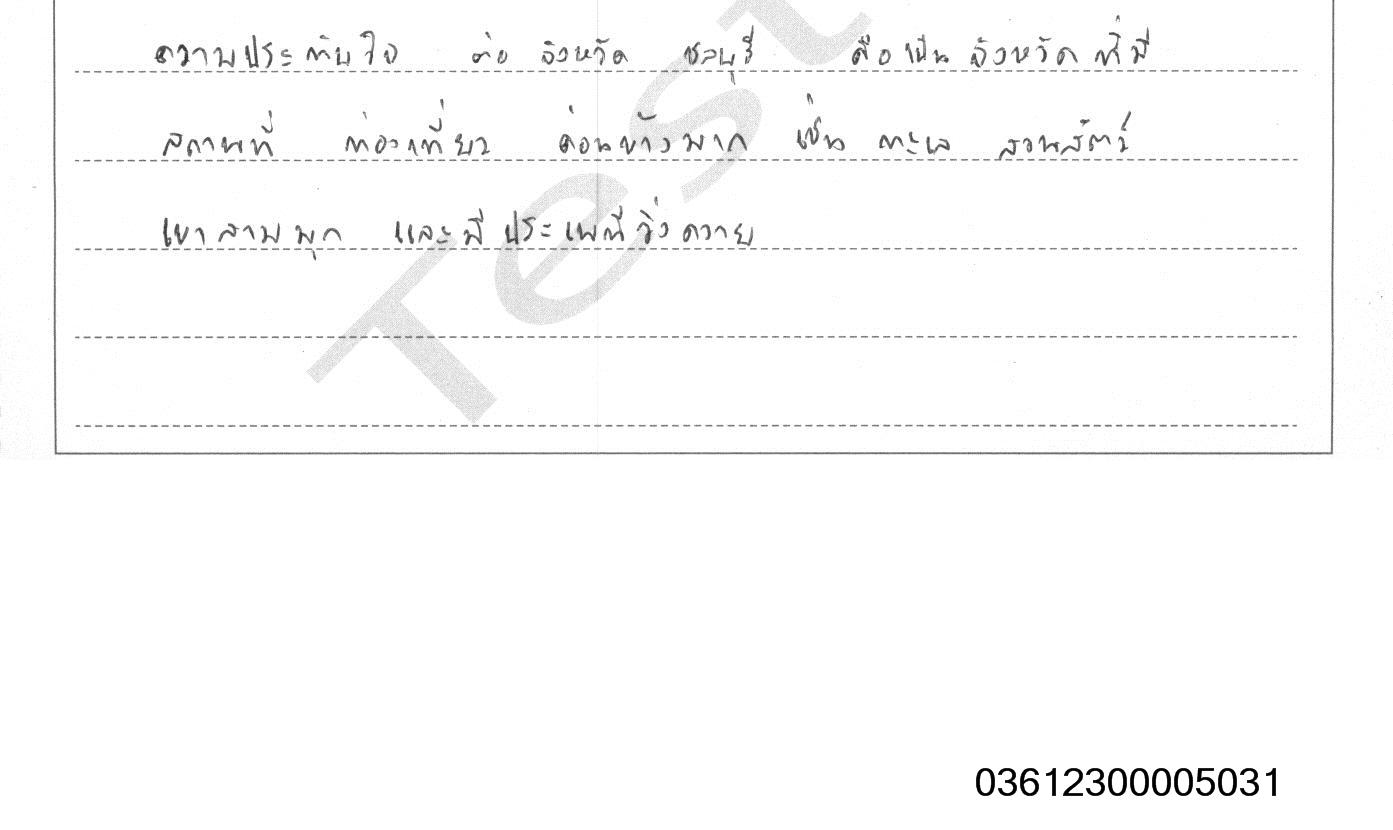 ความประทับใจ ต่อ จังหวัด ชลบุรี คือเป็น จังหวัดที่มี
สถานที่ ท่องเที่ยว ค่อนข้างมาก เช่น ทะเล สวนสัตว์
เขาสามมุก และมีประเพณีวิ่งควาย
Test
03612300005031